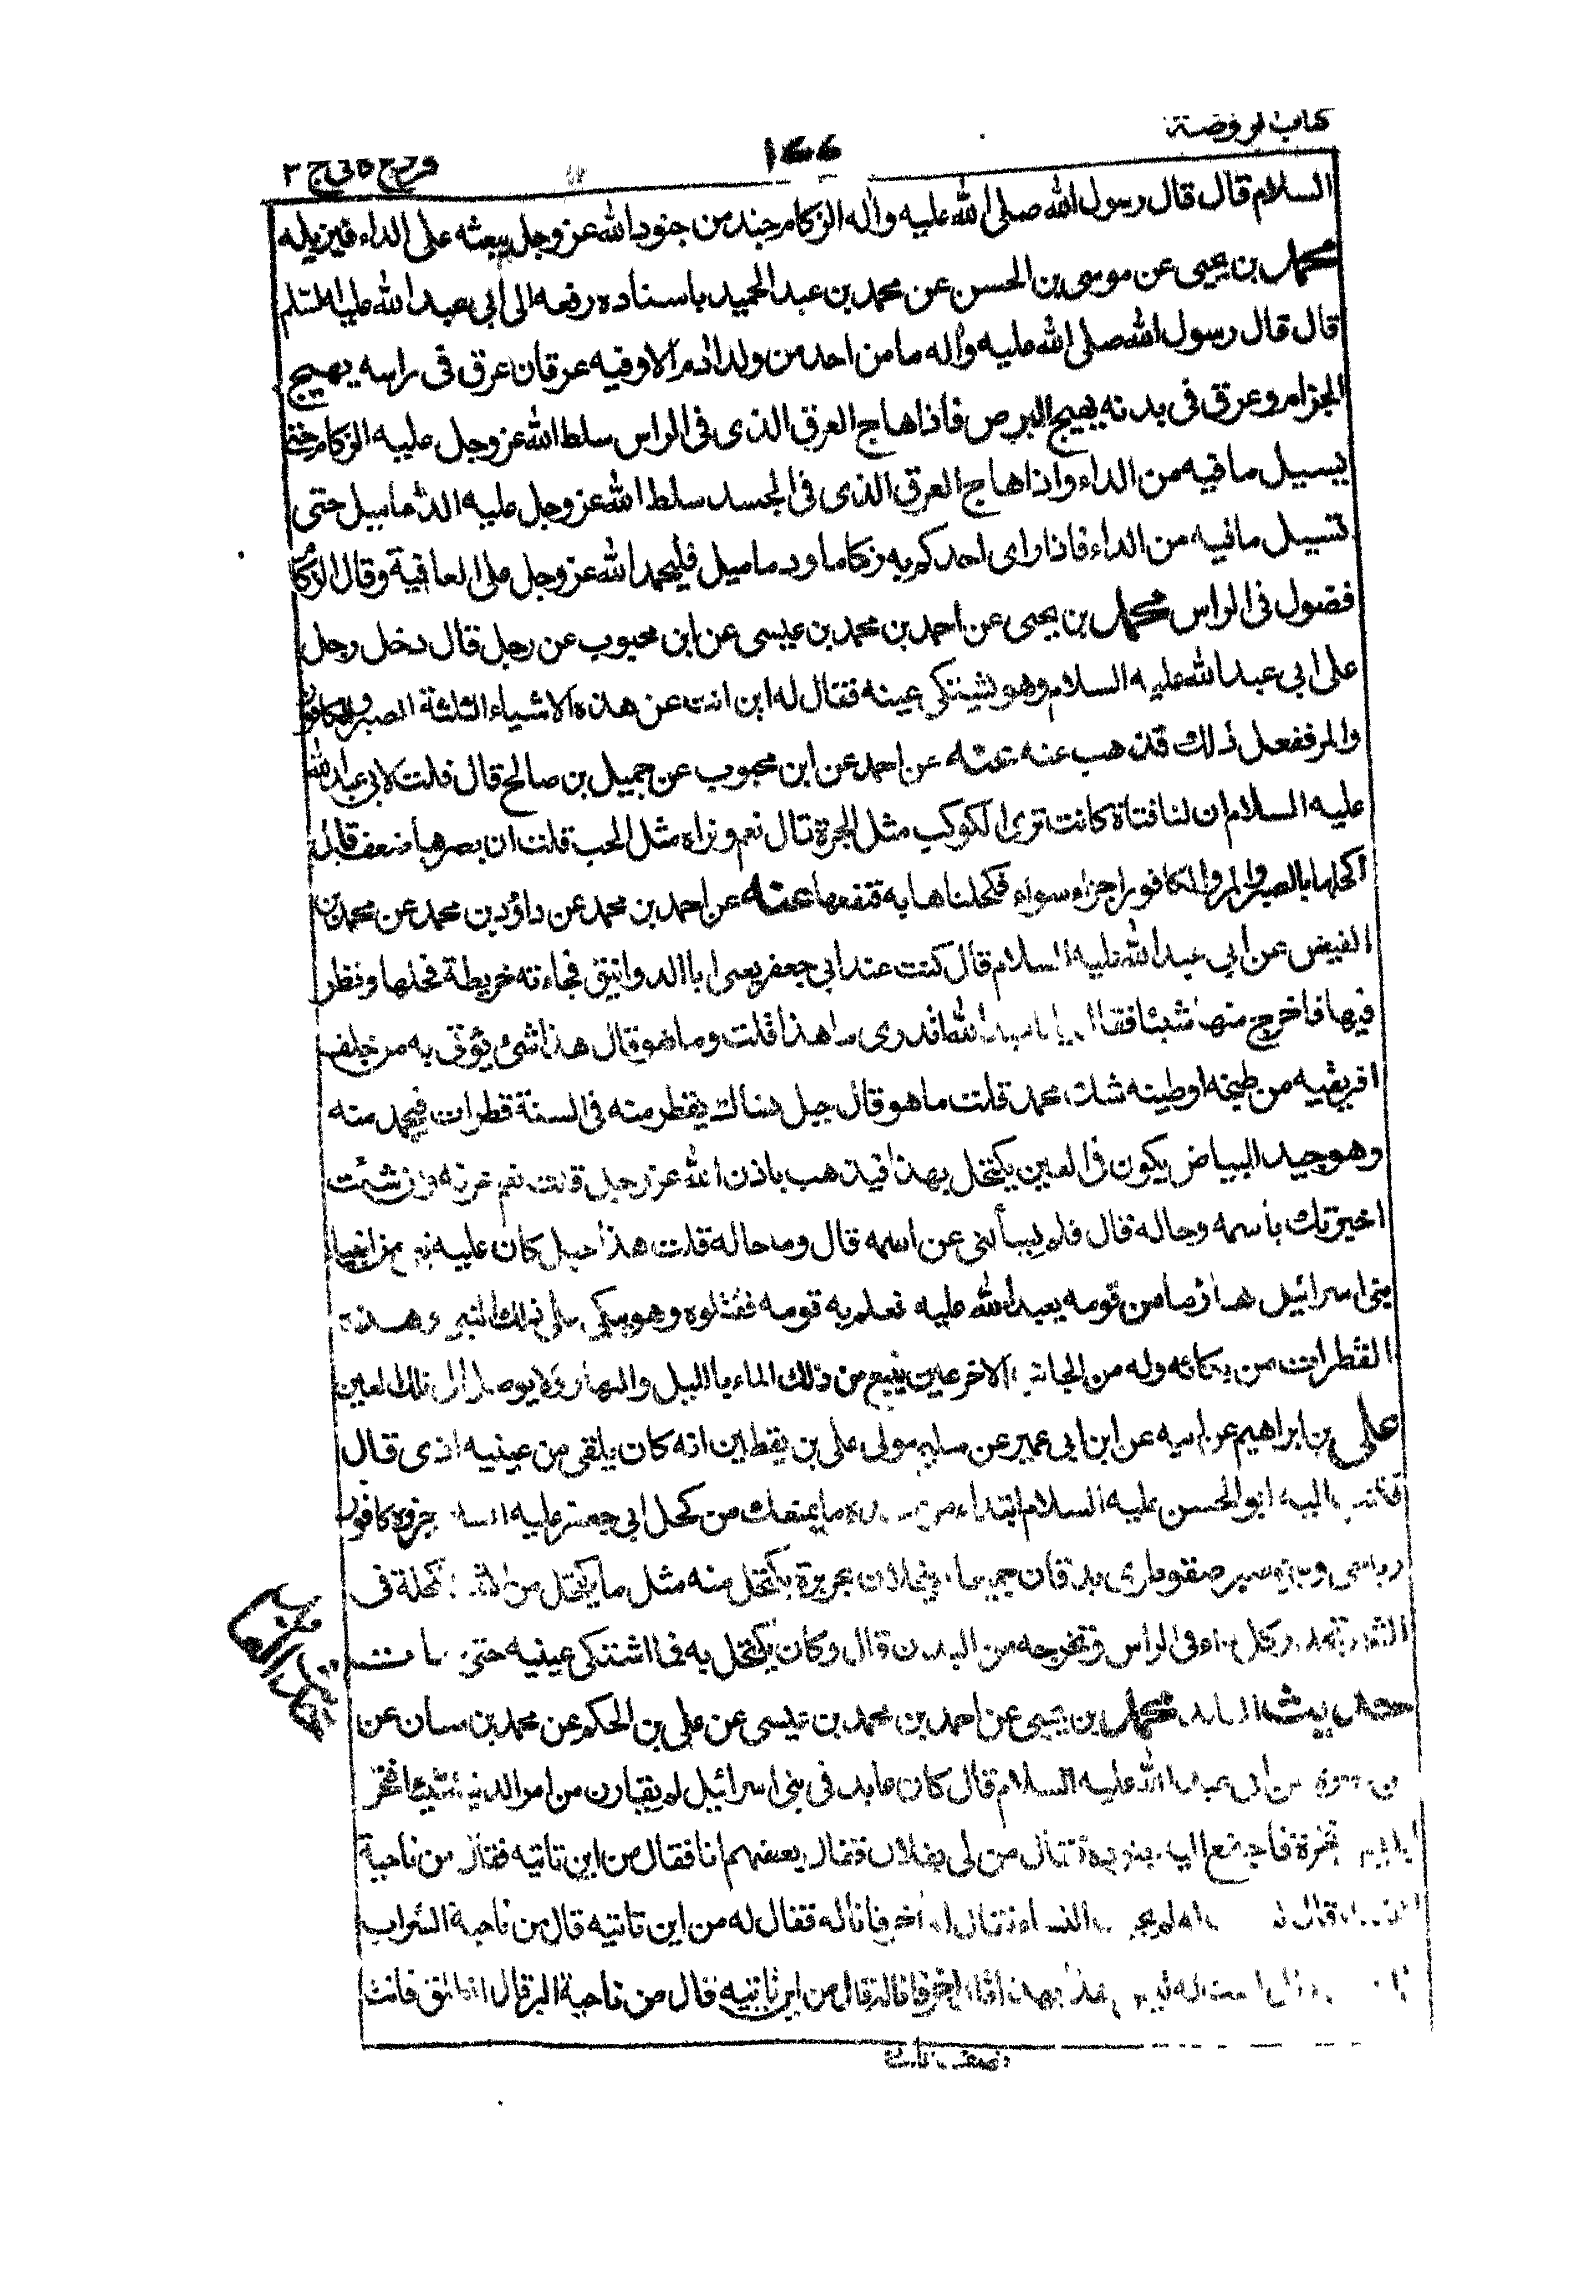 كتاب الروضة
١٤٤
فروع كافى ج ٣
السلام قال قال رسول الله صلى الله عليه واله الزكام جند من جنود الله عز وجل يبعثه على الداء فيزيله
محمد بن يحيى عن موسى بن الحسن عن محمد بن عبد الحميد باسناده رفعه الى ابى عبد الله عليه السلم
قال قال رسول الله صلى الله عليه واله ما من احد من ولد ادم الا وفيه عرقان عرق فى راسه يهيج
الجزام وعرق فى بدنه يهيج البرص فاذا هاج العرق الذى فى الراس سلط الله عز وجل عليه الزكام حتى
يسيل ما فيه من الداء واذا هاج العرق الذى فى الجسد سلط الله عز وجل عليه الدماميل حتى
تسيل ما فيه من الداء فاذا راى احدكم به زكاما ودماميل فليحمد الله عز وجل على العافية وقال الزكام
فضول فى الراس محمد بن يحيى عن احمد بن محمد بن عيسى عن ابن محبوب عن رجل قال دخل رجل
على ابى عبد الله عليه السلام وهو يشتكى عينه فقال له اين انت عن هذه الاشياء الثلثة الصبر والكافور
والمر ففعل ذلك فذهب عنه عنه عن احمد عن ابن محبوب عن جميل بن صالح قال قلت لابى عبد الله
عليه السلام ان لنا فتاة كانت ترى الكوكب مثل الجرة قال نعم وتراه مثل الحب قلت ان بصرها ضعف قال
اكحلها بالصبر والمر والكافور اجزاء سواء فكحلناها به فنفعها عنه عن احمد بن محمد عن داؤد بن محمد عن محمد بن
الفيض عن ابى عبد الله عليه السلام قال كنت عند ابى جعفر يعنى ابا الدوانيق فجاءته خريطة فحلها ونظر
فيها فاخرج منها شيئا فقال يا ابا عبد الله اتدرى ما هذا قلت وما هو قال هذا شئ يؤتى به من خلف
افريقيه من طنجه او طبنه شك محمد قلت ما هو قال جبل هناك يقطر منه فى السنة قطرات فيجمد منه
وهو جيد للبياض يكون فى العين يكتحل بهذا فيذهب باذن الله عز وجل قلت نعم اعرفه وان شئت
اخبرتك باسمه وحاله قال فلم يسألنى عن اسمه قال وما حاله قلت هذا جبل كان عليه نبى من انبياء
بنى اسرائيل هاربا من قومه يعبد الله عليه فعلم به قومه فقتلوه وهو يبكى على ذلك النبى وهذه
القطرات من بكائه وله من الجانب الاخر عين ينبع من ذلك الماء بالليل والنهار ولا يوصل الى تلك العين
على بن ابراهيم عن ابيه عن ابن ابى عمير عن سليم مولى على بن يقطين انه كان يلقى من عينيه اذى قال
فكتب اليه ابو الحسن عليه السلام ابتداء من عنده ما يمنعك من كحل ابى جعفر عليه السلام جزؤ كافور
رباحى وجزؤ صبر صقوطرى يدقان جميعا وينخلان بحريرة يكتحل منه مثل ما يكتحل من الاثمد الكحلة فى
الشهر تحدر كل داء فى الراس وتخرجه من البدن قال وكان يكتحل به فما اشتكى عينيه حتى مات
حديث العابد محمد بن يحيى عن احمد بن محمد بن عيسى عن على بن الحكم عن محمد بن سنان عن
من ابى عبد الله عليه السلام قال كان عابد فى بنى اسرائيل لم يقارن من امر الدنيا شيئا فنخر
ابليس نخرة فاجتمع اليه جنوده فقال من لى بفلان فقال بعضهم انا فقال من اين تاتيه فقال من ناحية
النساء قال لم يجرب النساء فقال له آخر فانا له فقال له من اين تاتيه قال من ناحية الشراب
بهذا قال اخر فانا له قال من اين تاتيه قال من ناحية البر قال انطلق فانت